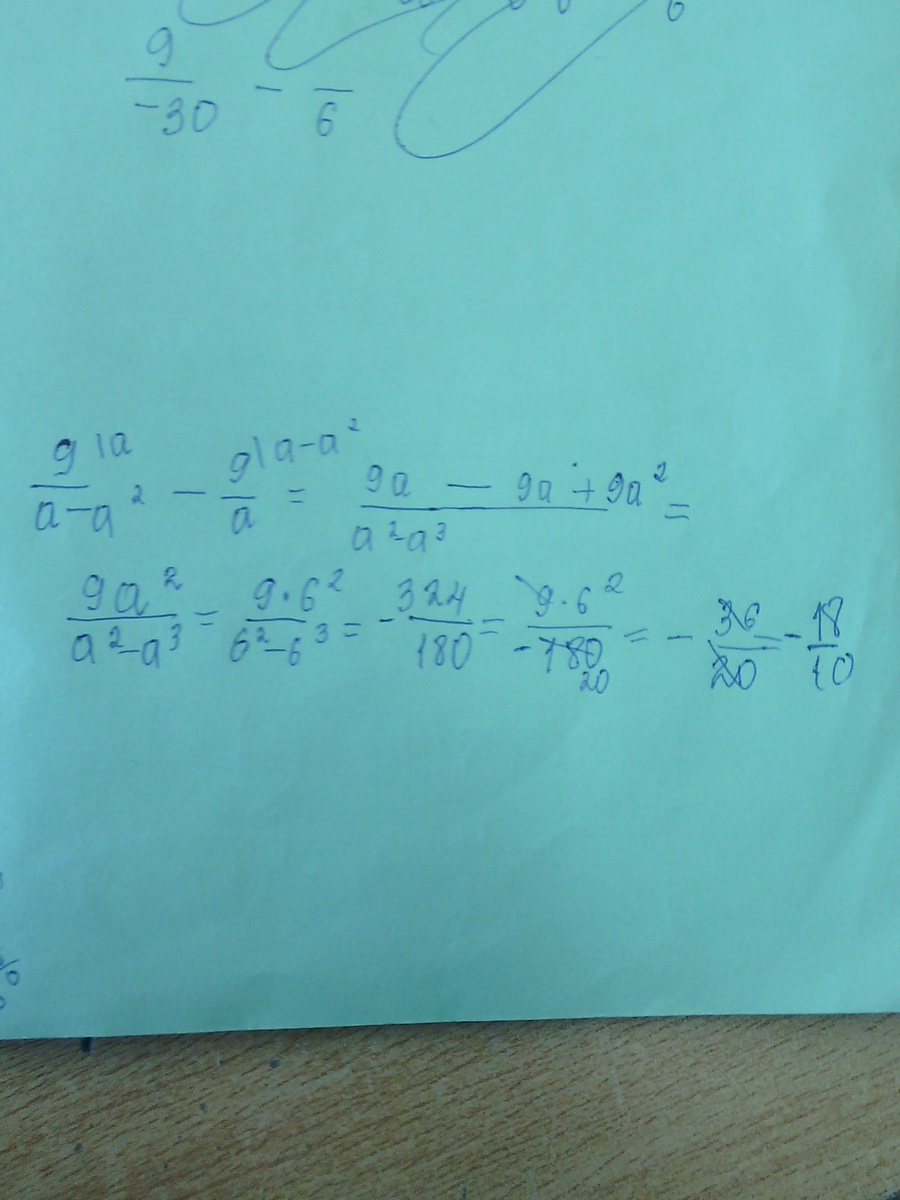 9/-30 - /6
9\a/(a-a²) - 9\a-a²/a = (9a - 9a + 9a²)/(a²-a³) =
9a²/(a²-a³) = 9·6²/(6²-6³) = -324/180 = 9·6²/-180 20 = -36/20 = -18/10